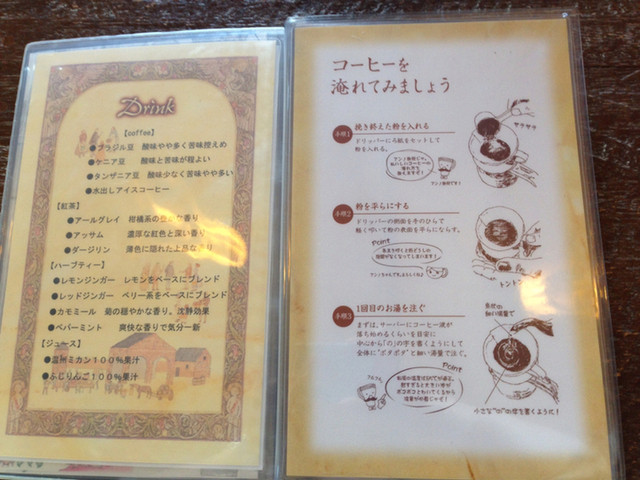 Drink
【coffee】
●ブラジル豆 酸味やや多く苦味控えめ
●ケニア豆 酸味と苦味が程よい
●タンザニア豆 酸味少なく苦味やや多い
●水出しアイスコーヒー
【紅茶】
●アールグレイ 柑橘系の 香り
●アッサム 濃厚な紅色と深い香り
●ダージリン 薄色に隠れた上品な香り
【ハーブティー】
●レモンジンガー レモンをベースにブレンド
●レッドジンガー ベリー系をベースにブレンド
●カモミール 菊の穏やかな香り、沈静効果
●ペパーミント 爽快な香りで気分一新
【ジュース】
●温州ミカン100%果汁
●ふじりんご100%果汁
コーヒーを
淹れてみましょう
手順1 挽き終えた粉を入れる
ドリッパーにろ紙をセットして
粉を入れる。
サラサラ
手順2 粉を平らにする
ドリッパーの側面を手のひらで
軽く叩いて粉の表面を平らにならす。
Point
トントン
手順3 1回目のお湯を注ぐ
まずは、サーバーにコーヒー液が
落ち始めるくらいを目安に
中心から「の」の字を書くようにして
全体に"ポタポタ"と細い湯量で注ぐ。
Point
小さな"の"の字を書くように!